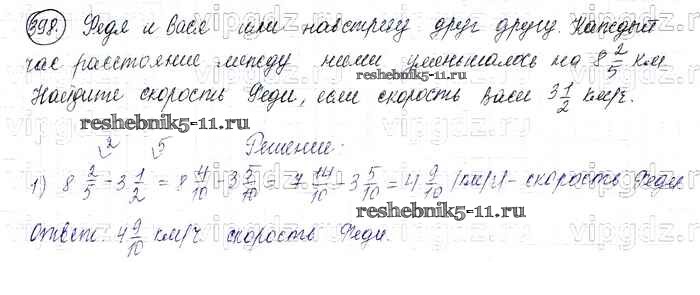 398. Федя и Вася шли навстречу друг другу. Каждый
час расстояние между ними уменьшалось на 8 2/5 км
reshebnik5-11.ru
Найдите скорость Феди, если скорость Васи 3 1/2 км/ч.
reshebnik5-11.ru
Решение:
1) 8 2/5 - 3 1/2 = 8 4/10 - 3 5/10 = 7 14/10 - 3 5/10 = 4 9/10 (км/ч) - скорость Феди.
reshebnik5-11.ru
Ответ: 4 9/10 км/ч. скорость Феди.